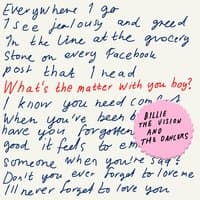 Everywhere I go
I see jealousy and greed
In the line at the grocery
Store on every Facebook
post that I read
What's the matter with you boy?
I know you need com
When you're been b
have you forgotten
good it feels to em
someone when you're sad?
Don't you ever forget to love me
I'll never forget to love you
BILLIE
THE VISION
AND
THE DANCERS